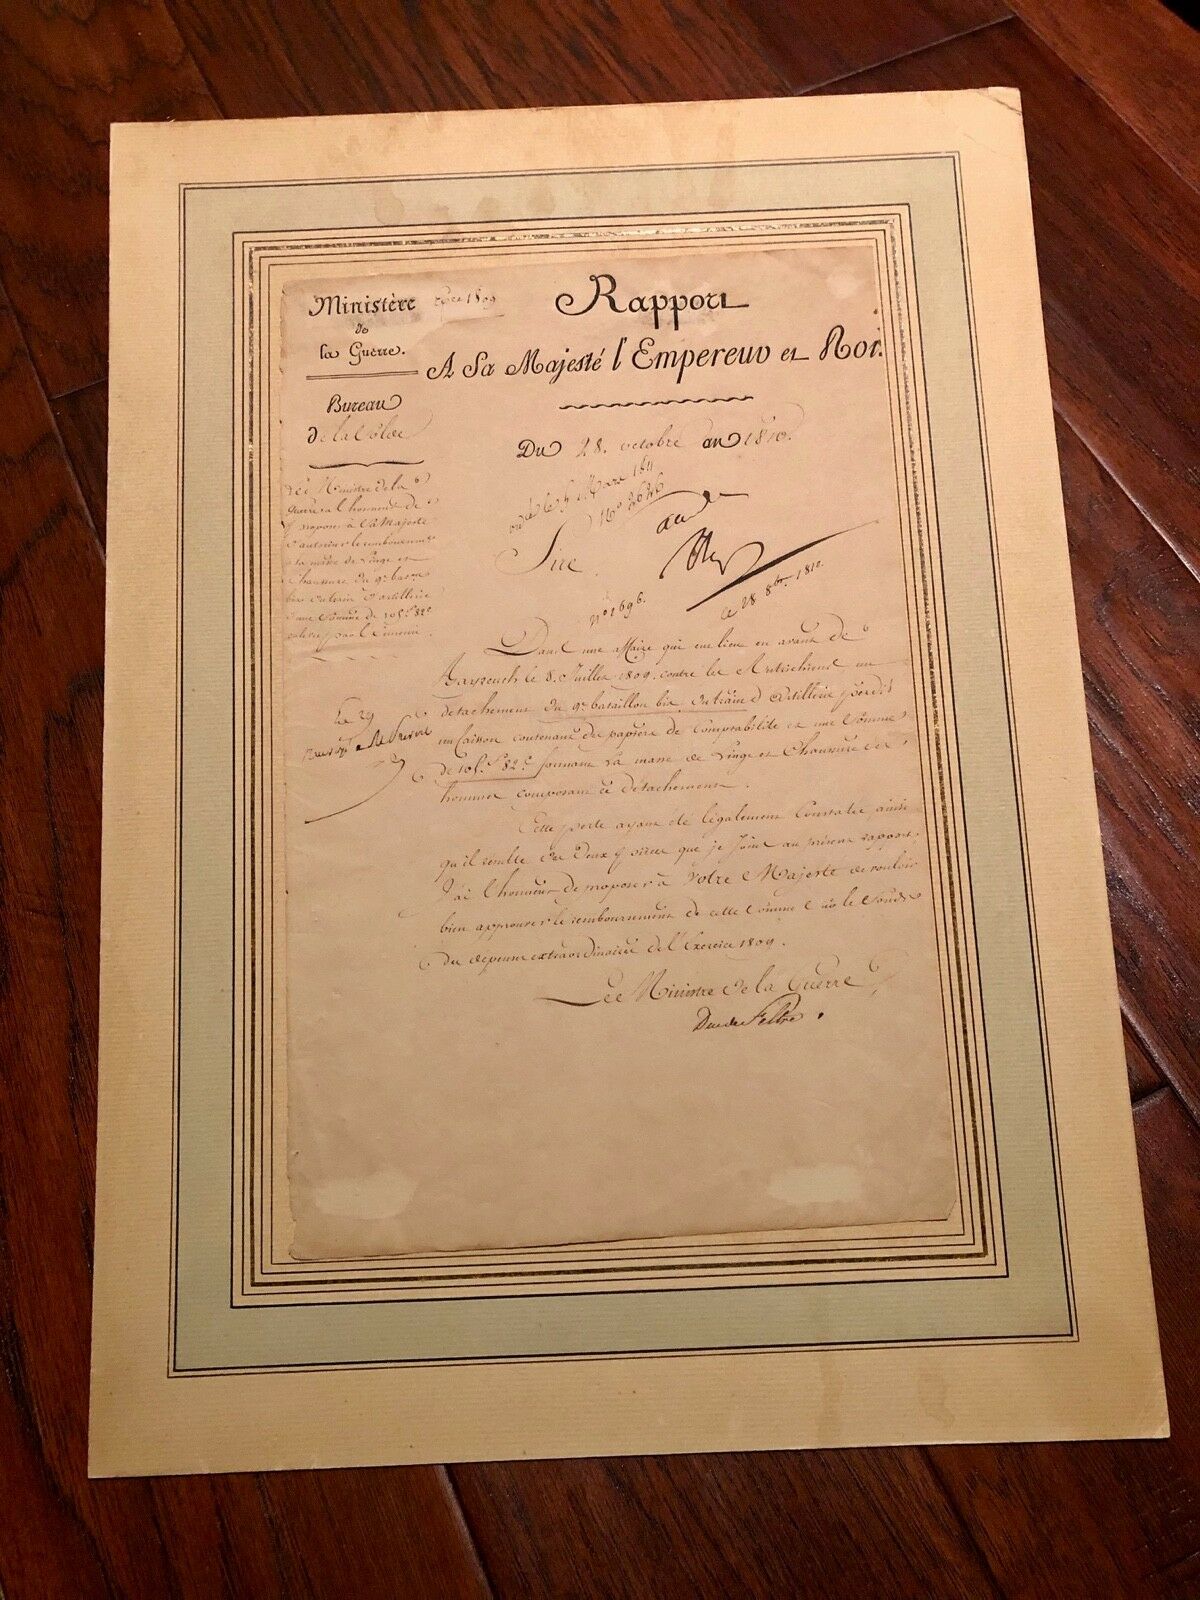 Ministère
de
la Guerre.
1809
Bureau
de la Solde
Rapport
A Sa Majesté l'Empereur et Roi.
Du 28. octobre an 1810.
Le Ministre de la
Guerre a l'honneur de
proposer à Sa Majesté
d'autoriser le remboursement
à la masse de Linge et
Chaussure du 9e. baton
bis du train d'artillerie
d'une Somme de 101f. 82c
enlevée par l'Ennemi.
Mars 1811
No 2626
Sire
le 28 8bre 1810
no 1696.
Dans une affaire qui eut lieu en avant de
le 8. Juillet 1809. contre les Autrichiens un
détachement du 9e. bataillon bis du train d'Artillerie perdit
un Caisson contenant des papiers de Comptabilité et une Somme
de 101f. 82c. formant la masse de Linge et Chaussure des
hommes composant ce détachement.
Cette perte ayant été légalement Constatée ainsi
qu'il résulte des deux pièces que je joins au présent rapport,
J'ai l'honneur de proposer à Votre Majesté de vouloir
bien approuver le remboursement de cette Somme sur le fonds
des dépenses extraordinaires de l'Exercice 1809.
Le Ministre de la Guerre
Duc de Feltre.